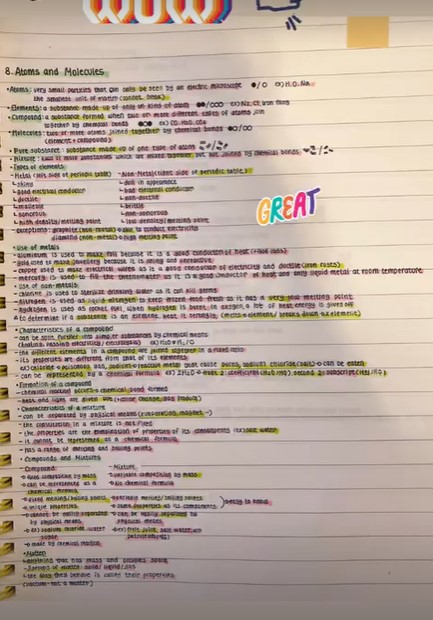 WOW
8. Atoms and Molecules
•Atoms: very small particles that can only be seen by an electric microscope ex) H, O, Na
the smallest unit of matter (cannot break)
•Elements: a substance made up of only one kind of atom ex) Na, Cl, iron filing
•Compound: a substance formed when two or more different types of atoms join
together by chemical bonds ex) CO, H₂O, CO₂
•Molecules: two or more atoms joined together by chemical bonds
(element + compound)
•Pure substance: substance made up of one type of atoms
•Mixture: two or more substances which are mixed together but not joined by chemical bonds
•Types of elements
-Metal (left side of periodic table) -Non-Metal (right side of periodic table)
↳shiny ↳dull in appearance
↳good electrical conductor ↳bad electrical conductor
↳ductile ↳non-ductile
↳malleable ↳brittle
↳sonorous ↳non-sonorous
↳high density/melting point ↳low density/melting point
GREAT
•exceptions: graphite (non-metal) → able to conduct electricity
diamond (non-metal) → high melting point
•Use of metals
-aluminum is used to make foil because it is a good conductor of heat (food cans)
-gold used to make jewellery because it is shiny and unreactive
-copper used to make electrical wires as it is a good conductor of electricity and ductile (iron rusts)
-mercury is used to fill the thermometer as it is a good conductor of heat and only liquid metal at room temperature
•Use of non-metals
-chlorine is used to sterilize drinking water as it can kill germs
-nitrogen is used as liquid nitrogen to keep dried food fresh as it has a very low melting point
-hydrogen is used as rocket fuel, when hydrogen is burnt in oxygen, a lot of heat energy is given off
•Characteristics of a compound
-can be split further into simpler substances by chemical means
-the different elements in a compound are joined together in a fixed ratio
-its properties are different from that of its elements
-can be represented by a chemical formula
•Formation of a compound
-chemical reaction occurs → chemical bond formed
•Characteristics of a mixture
-can be separated by physical means (evaporation, magnet)
-the constitution in a mixture is not fixed
-the properties are the combination of properties of its components
-it cannot be represented as a chemical formula
-has a range of melting and boiling points
•Compounds and Mixtures
-Compound: -Mixture
↳fixed composition by mass ↳variable composition by mass
↳can be represented as a ↳no chemical formula
chemical formula
↳fixed melting/boiling points ↳variable melting/boiling points
↳unique properties ↳same properties as its components
↳cannot be easily separated ↳can be easily separated by
by physical means physical means
↳made by chemical reaction
•Matter
-anything that has mass and occupies space
-3 forms of matter: solid/liquid/gas
-the way they behave is called their properties
(vacuum - not a matter)